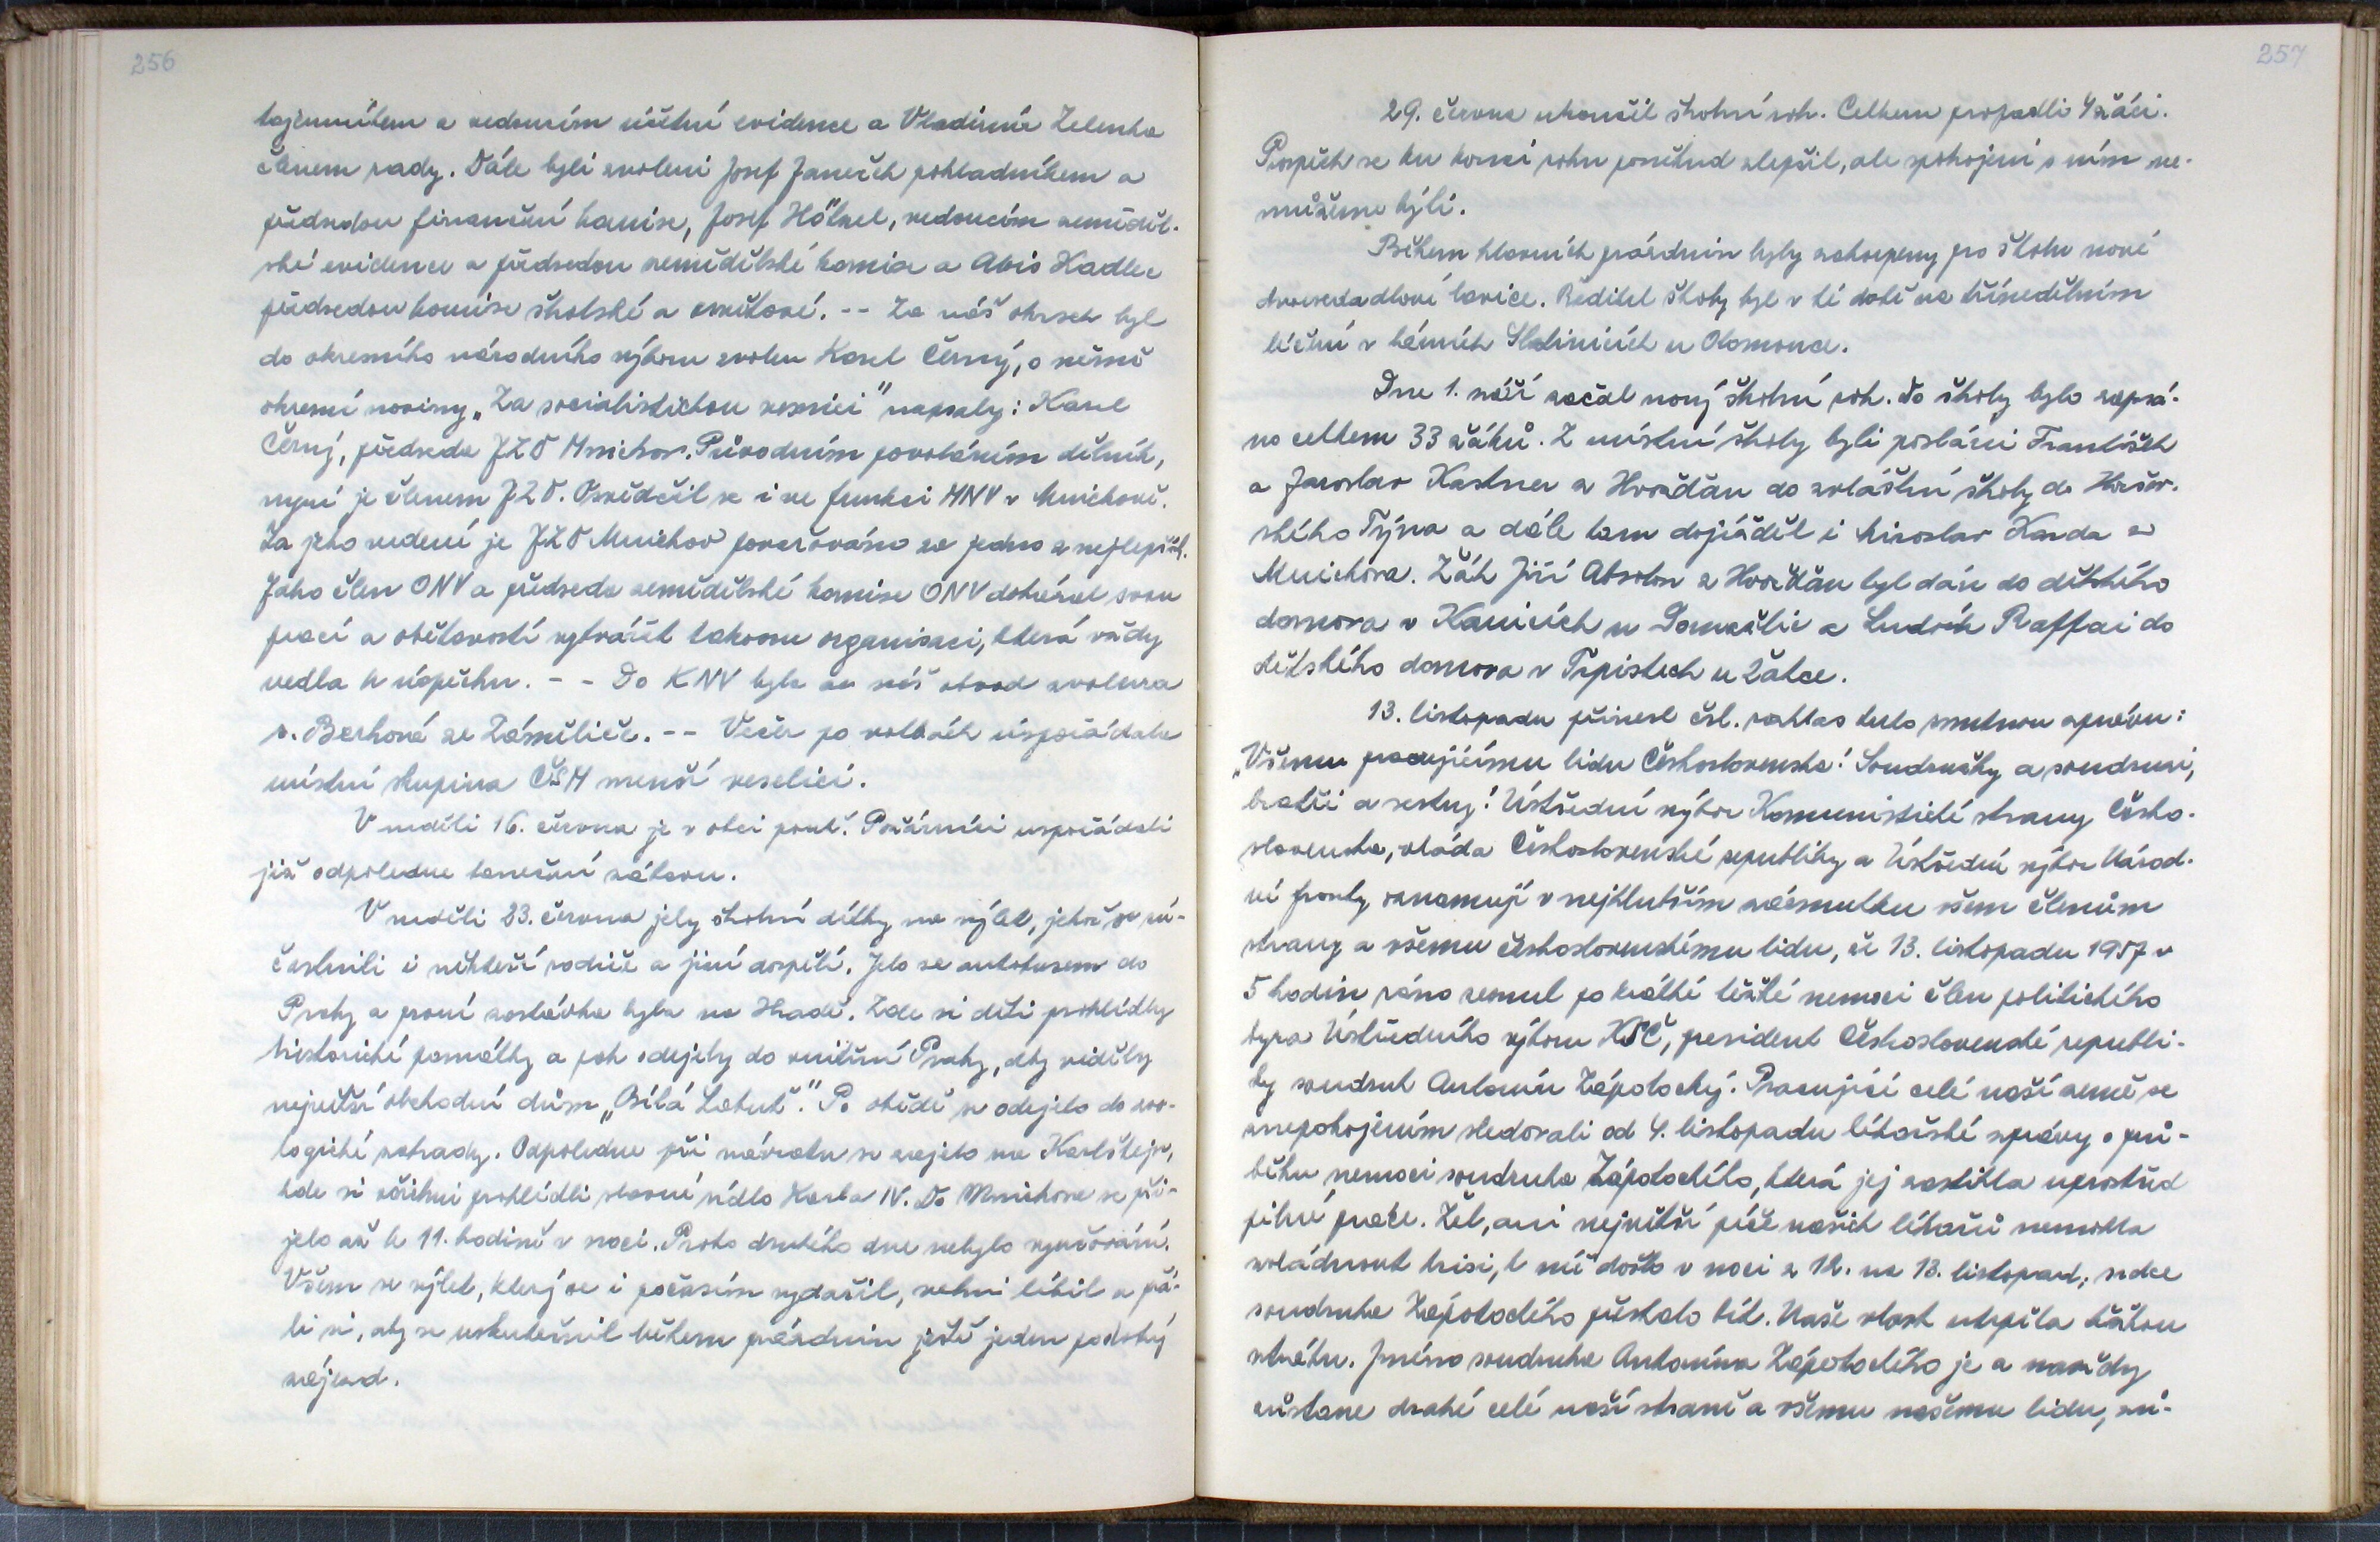 256
tajemníkem a vedoucím účetní evidence a Vladimír Zelenka
členem rady. Dále byli zvoleni Josef Janeček pokladníkem a
předsedou finanční komise, Josef Hölzel, vedoucím zeměděl-
ské evidence a předsedou zemědělské komise a Alois Kadlec
předsedou komise školské a osvětové. -- Za náš okrsek byl
do okresního národního výboru zvolen Karel Černý, o němž
okresní noviny „Za socialistickou vesnici" napsaly: Karel
Černý, předseda JZD Mnichov. Původním povoláním dělník,
nyní je členem JZD. Osvědčil se i ve funkci MNV v Mnichově.
Za jeho vedení je JZD Mnichov považováno za jedno z nejlepších.
Jako člen ONV a předseda zemědělské komise ONV dokázal svou
prací a obětavostí vytvářet takovou organisaci, která vždy
vedla k úspěchu. -- Do KNV byla za náš obvod zvolena
s. Berková ze Zámělíče. -- Večer po volbách uspořádala
místní skupina ČSM menší veselici.
V neděli 16. června je v obci pouť. Požárníci uspořádali
již odpoledne taneční zábavu.
V neděli 23. června jely školní dítky na výlet, jehož se zú-
častnili i někteří rodiče a jiní dospělí. Jelo se autobusem do
Prahy a první zastávka byla na Hradě. Zde si děti prohlídly
historické památky a pak odejely do vnitřní Prahy, aby viděly
největší obchodní dům „Bílá Labuť." Po obědě se odejelo do zoo-
logické zahrady. Odpoledne při návratu se zajelo na Karlštejn,
kde si všichni prohlédli slavné sídlo Karla IV. Do Mnichova se při-
jelo až k 11. hodině v noci. Proto druhého dne nebylo vyučování.
Všem se výlet, který se i počasím vydařil, velmi líbil a přá-
li si, aby se uskutečnil během prázdnin ještě jeden podobný
zájezd.
257
29. června ukončil školní rok. Celkem propadli 4 žáci.
Prospěch se ku konci roku poněkud zlepšil, ale spokojeni s ním ne-
můžeme býti.
Během hlavních prázdnin byly zakoupeny pro školu nové
dvousedadlové lavice. Ředitel školy byl v té době na třínedělním
léčení v lázních Slatinicích u Olomouce.
Dne 1. září začal nový školní rok. Do školy bylo zapsá-
no celkem 33 žáků. Z místní školy byli posláni František
a Jaroslav Kastner z Hvožďan do zvláštní školy do Horšov-
ského Týna a dále tam dojížděl i Miroslav Karda z
Mnichova. Žák Jiří Absolon z Hvožďan byl dán do dětského
domova v Kanicích u Domažlic a Ludvík Raffai do
dětského domova v Trpistech u Žatce.
13. listopadu přinesl čsl. rozhlas tuto smutnou zprávu:
„Všemu pracujícímu lidu Československa! Soudružky a soudruzi,
bratři a sestry! Ústřední výbor Komunistické strany Česko-
slovenska, vláda Československé republiky a Ústřední výbor Národ-
ní fronty oznamují v nejhlubším zármutku všem členům
strany a všemu československému lidu, že 13. listopadu 1957 v
5 hodin ráno zemřel po krátké těžké nemoci člen politického
byra Ústředního výboru KSČ, president Československé republi-
ky soudruh Antonín Zápotocký. Pracující celé naší země se
znepokojením sledovali od 4. listopadu lékařské zprávy o prů-
běhu nemoci soudruha Zápotockého, která jej zastihla uprostřed
pilné práce. Žel, ani největší péče našich lékařů nemohla
zvládnout krisi, k níž došlo v noci z 12. na 13. listopad, srdce
soudruha Zápotockého přestalo bít. Naše vlast utrpěla těžkou
ztrátu. Jméno soudruha Antonína Zápotockého je a navždy
zůstane drahé celé naší straně a všemu našemu lidu, zů-